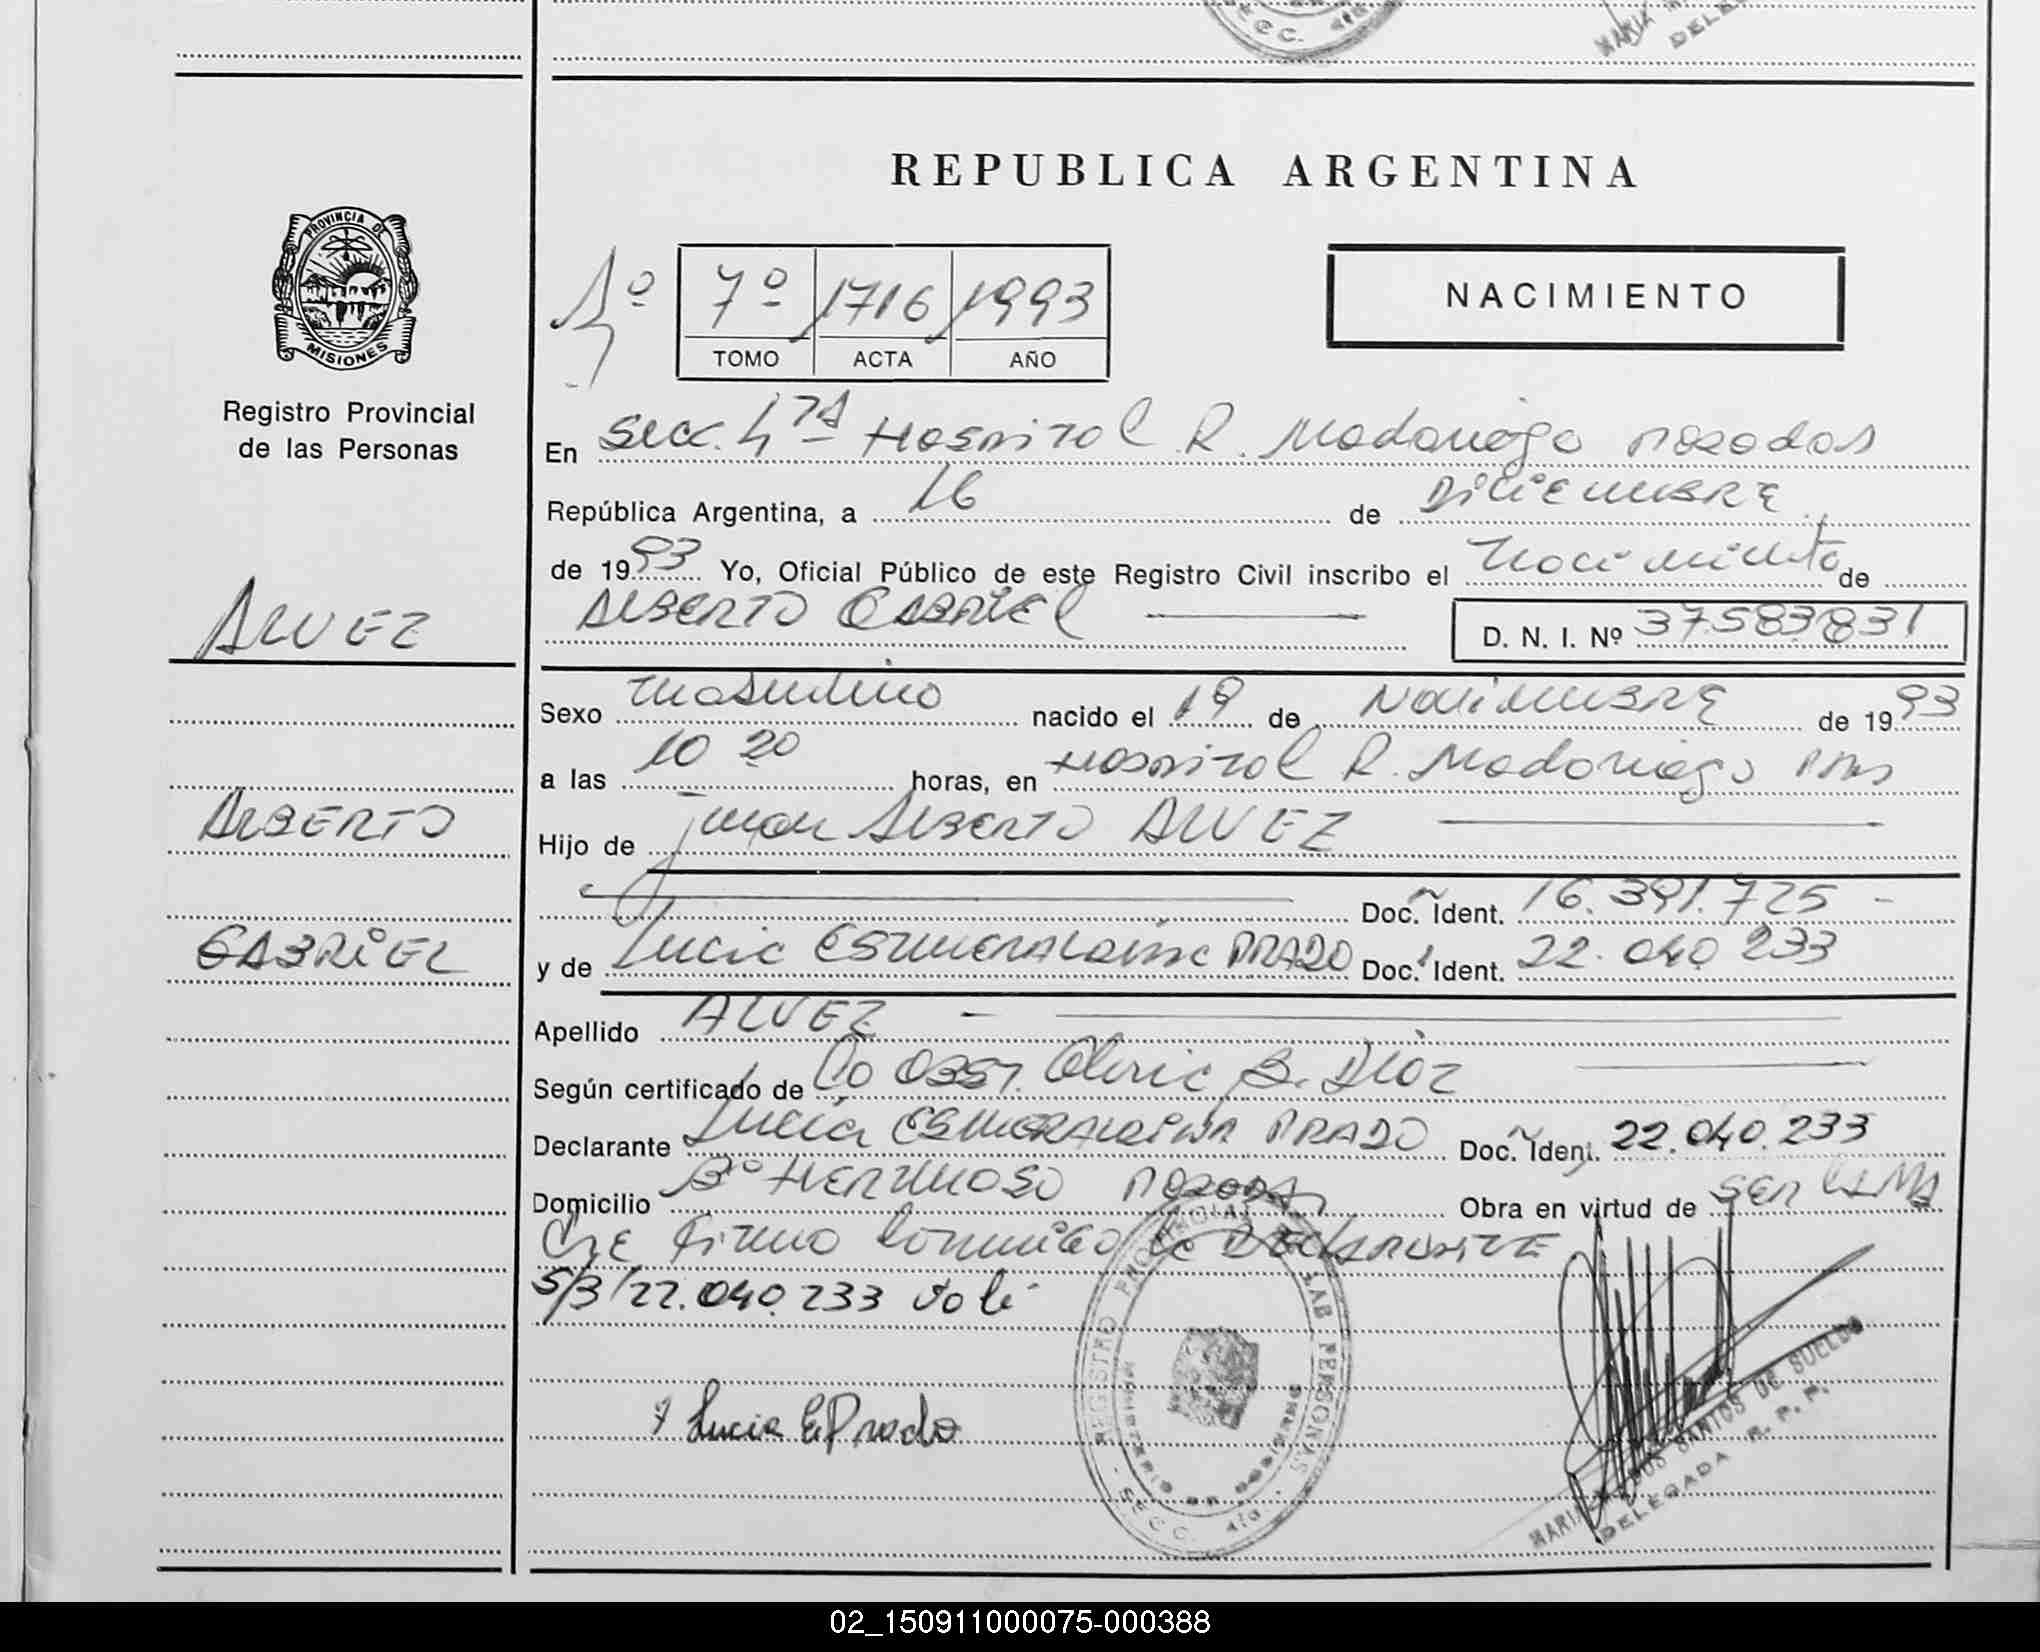 SECC. 4ta.
MARIA
DELEG
REPUBLICA ARGENTINA
PROVINCIA DE
MISIONES
Registro Provincial
de las Personas
7º 1716 1993
TOMO ACTA AÑO
NACIMIENTO
En Secc. 4ta Hospital R. Madariaga Posadas
República Argentina, a 16 de Diciembre
de 1993 Yo, Oficial Público de este Registro Civil inscribo el Nacimiento de
ALBERTO GABRIEL D. N. I. Nº 37583831
ALVEZ
ALBERTO
GABRIEL
Sexo masculino nacido el 19 de Noviembre de 1993
a las 10 20 horas, en Hospital R. Madariaga Pdas
Hijo de Juan Alberto ALVEZ
Doc. Ident. 16.391.725 -
y de Lucia ESMERALDINA PRADO Doc. Ident. 22.040.233
Apellido ALVEZ
Según certificado de Do Obst. B. Diaz
Declarante Lucia ESMERALDINA PRADO Doc. Ident. 22.040.233
Domicilio Bº HERMOSO Posadas Obra en virtud de
firmo conmigo la Declarante
S/B/22.040.233 Vale
Lucia E. Prado
REGISTRO PROVINCIAL DE LAS PERSONAS
MINISTERIO DE GOBIERNO
SECC. 4ta.
DOS SANTOS DE SUELDO
DELEGADA R. P. P.
02_150911000075-000388